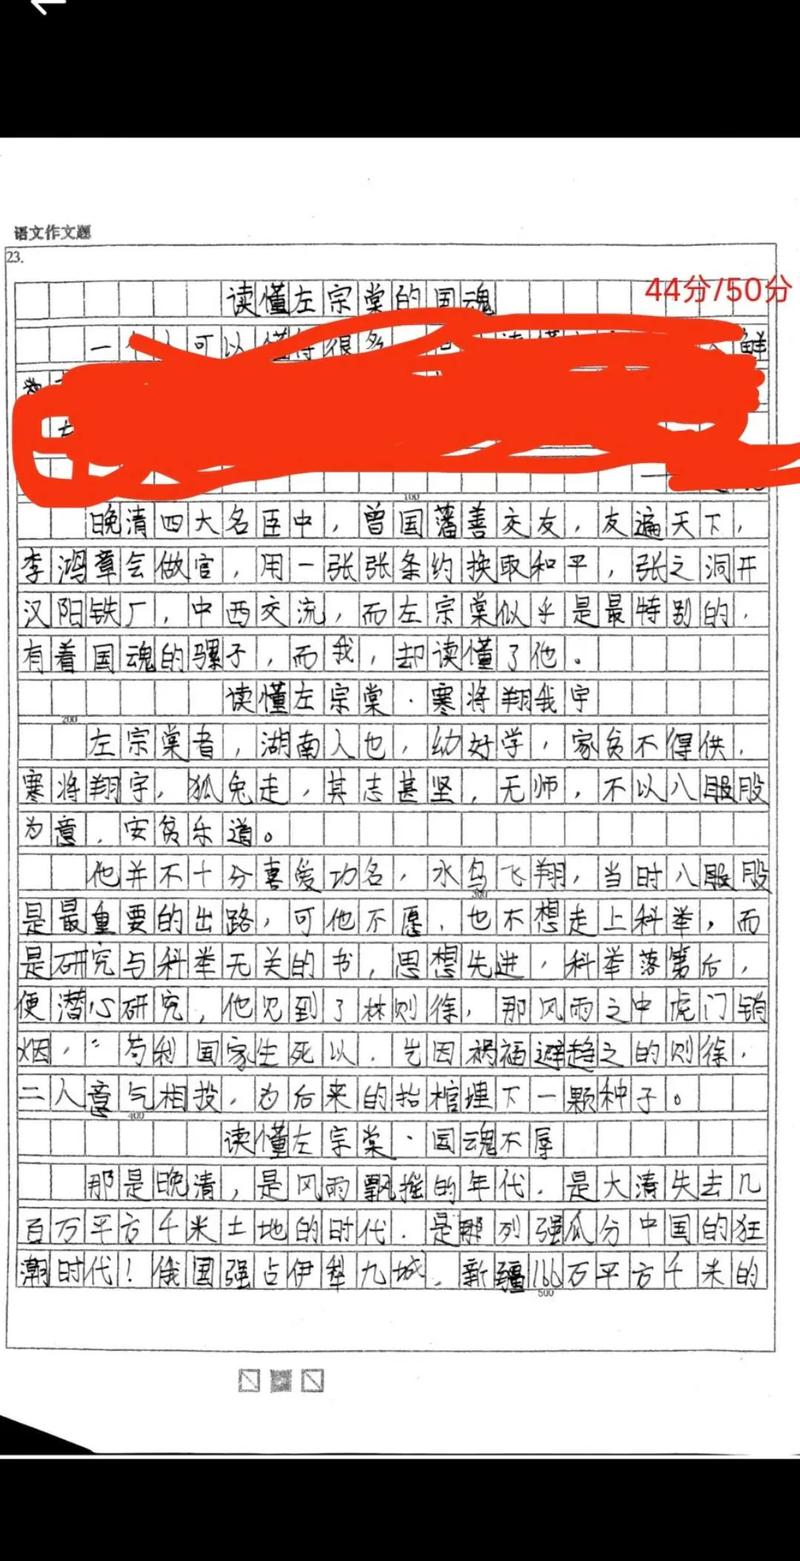 语文作文题
23.
读懂左宗棠的国魂
44分/50分
一 可以懂得很多 鲜
100
晚清四大名臣中，曾国藩善交友，友遍天下，
李鸿章会做官，用一张张条约换取和平，张之洞开
汉阳铁厂，中西交流，而左宗棠似乎是最特别的，
有着国魂的骡子，而我，却读懂了他。
读懂左宗棠·寒将翔我宇
200
左宗棠者，湖南人也，幼好学，家贫不得供，
寒将翔宇，狐兔走，其志甚坚，无师，不以八股
为意，安贫乐道。
他并不十分喜爱功名，水鸟飞翔，当时八股
300
是最重要的出路，可他不愿，也不想走上科举，而
是研究与科举无关的书，思想先进，科举落第后，
便潜心研究，他见到了林则徐，那风雨之中虎门销
烟，“苟利国家生死以，岂因祸福避趋之的则徐，
二人意气相投，为后来的抬棺埋下一颗种子。
400
读懂左宗棠·国魂不辱
那是晚清，是风雨飘摇的年代，是大清失去几
百万平方千米土地的时代，是那列强瓜分中国的狂
潮时代！俄国强占伊犁九城，新疆166万平方千米的
500